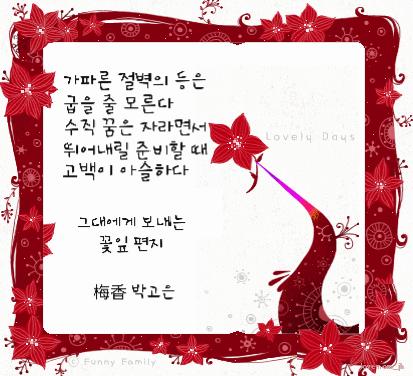 가파른 절벽의 등은
굽을 줄 모른다
수직 꿈은 자라면서
뛰어내릴 준비할 때
고백이 아슬하다
Lovely Days
그대에게 보내는
꽃잎 편지
梅香 박고은
© Funny Family